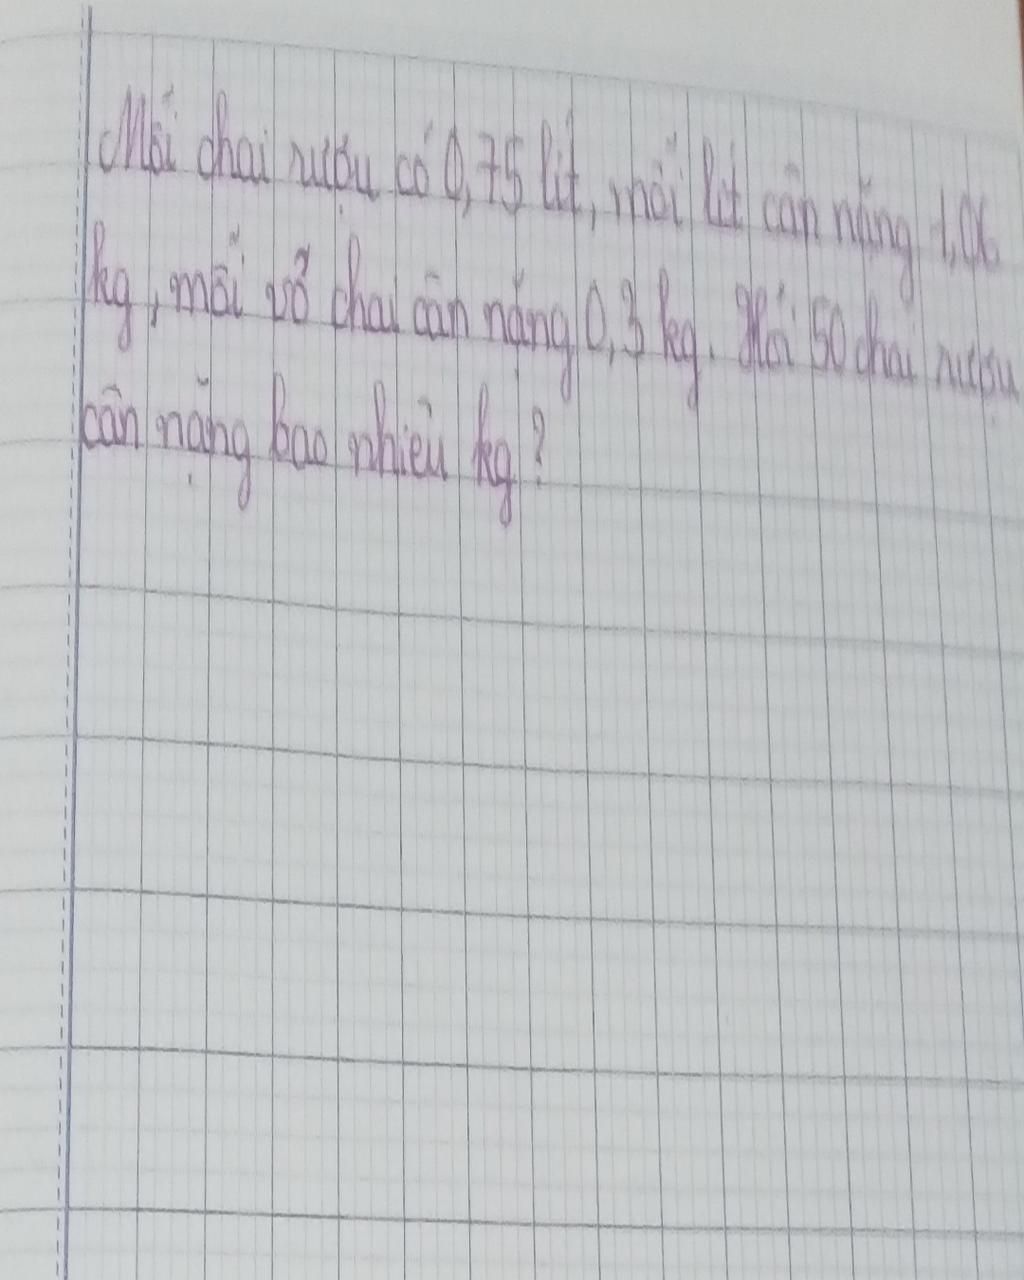 Mỗi chai rượu có 0,75 lít, mỗi lít cân nặng 1,06
kg, mỗi vỏ chai cân nặng 0,3 kg. Hỏi 50 chai rượu
cân nặng bao nhiêu kg?